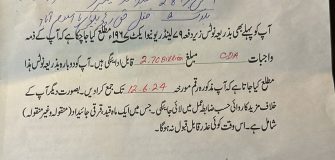 آپ کو پہلے بھی بذریعہ نوٹس زیر دفعہ ۷۹ لینڈ ریونیو ایکٹ ۱۹۶۷ء مطلع کیا جا چکا ہے کہ آپ کے ذمہ
واجبات CDA مبلغ 2.70 Billion قابل ادائیگی ہیں۔ آپ کو دوبارہ بذریعہ نوٹس ہذا
مطلع کیا جاتا ہے کہ آپ مذکورہ رقم مورخہ 12.6.24 تک جمع کرادیں۔ بصورت دیگر آپ کے
خلاف مزید کاروائی حسب ضابطہ عمل میں لائی جائیگی۔ جس میں ایک ماہ قید، قرقی جائیداد (منقولہ و غیر منقولہ)
شامل ہے۔ اس وقت کوئی عذر قابل قبول نہ ہوگا۔